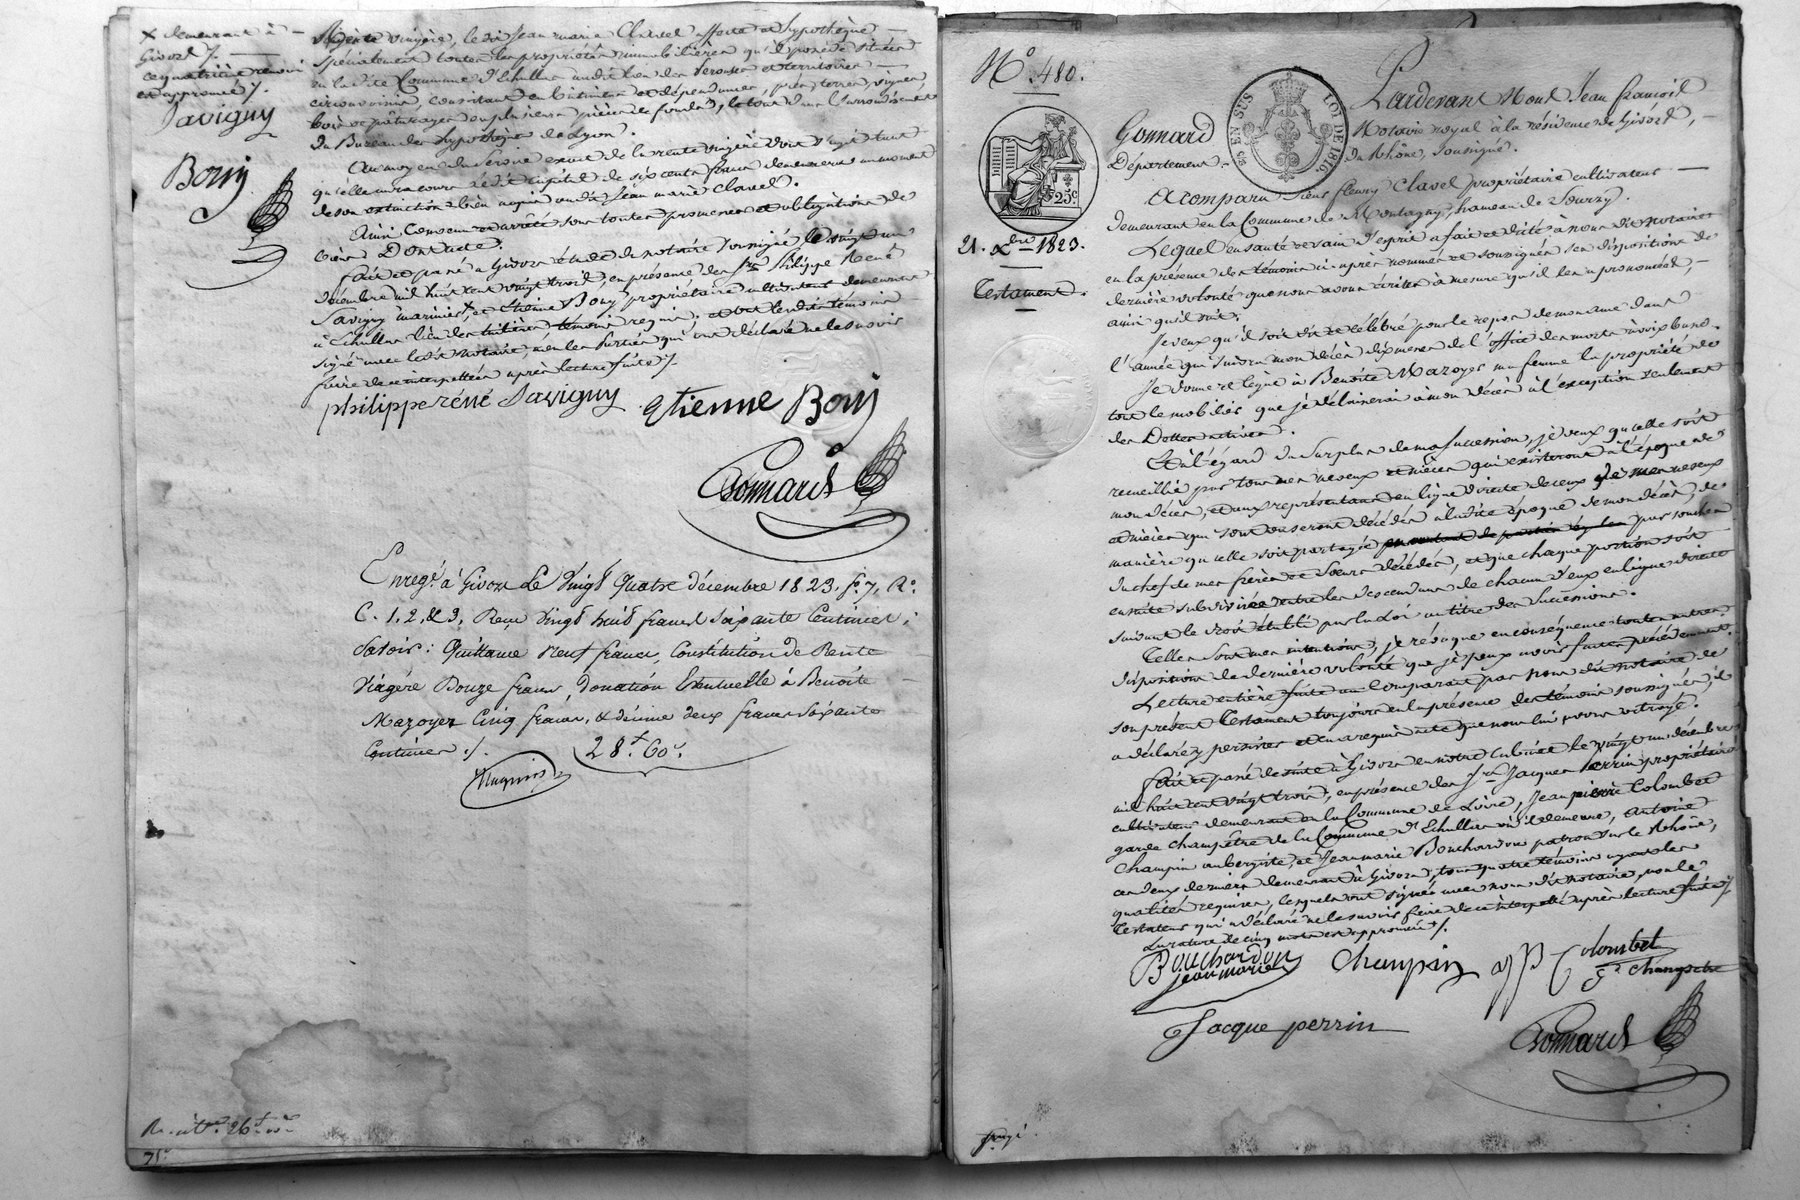 x demeurant à
Givors /.
ce quatrième renvoi
est approuvé /.
Savigny
Bony
viagère, le dit Jean marie Clavel affecte et hypothèque
Spécialement toutes les propriétés immobilières qu'il possède situées
en la dite Commune d'Echallas au dit lieu des et territoires
circonvoisins, consistant en bâtimens et dépendances, prés, terres, vignes,
bois et pâturages en plusieurs pièces de fonds, le tout dans l'arrondissement
du Bureau des hypothèques de Lyon.
Au moyen du Service exact de la rente viagère dont s'agit tant
qu'elle aura cours le dit capital de six cents francs demeurera au moment
de son extinction bien acquis au dit Jean marie Clavel.
Ainsi Convenu et arrêté sous toutes promesses et obligations de
biens Dont acte.
fait et passé à Givors étude du notaire soussigné le vingt un
décembre mil huit cent vingt trois, en présence des Srs Philippe René
Savigny marinier x, et Etienne Bony, propriétaire cultivateur demeurant
à Echallas lieu des témoins requis, et ont les dits témoins
signé avec le dit notaire, non les parties qui ont déclaré ne le savoir
faire de ce interpellées après lecture faite /.
philippe réné Savigny Etienne Bony
Gonnard
Enregé à Givors Le Vingt Quatre décembre 1823, fo 7, Ro
C. 1, 2, & 3, Reçu Vingt huit francs Soixante Centimes ;
Savoir : Quittance Neuf francs, Constitution de Rente
Viagère Douze francs, Donation Eventuelle à Benoite
Mazoyer Cinq francs, & décime deux francs Soixante
Centimes ./. 28 f. 60 c.
No. 480.
25c
21. Xbre 1823.
Testament.
25 EN SUS
LOI DE 1816
Pardevant Nous Jean françois
Gonnard Notaire royal à la résidence de Givors,
Département du Rhône, soussigné.
A comparu Sieur fleury Clavel propriétaire cultivateur
demeurant en la Commune de Montagny, hameau de Sourzy.
Lequel en santé et sain d'esprit a fait et dicté à nous dit notaire
en la présence des témoins ci après nommés et soussignés ses dispositions de
dernière volonté que nous avons écrites à mesure qu'il les a prononcées,
ainsi qu'il suit.
Je veux qu'il soit dit et célébré pour le repos de mon ame dans
l'année qui suivra mon décès dix messes de l'office des morts à voix basse.
Je donne et lègue à Benoite Mazoyer ma femme la propriété de
tout le mobilier que je délaisserai à mon décès à l'exception seulement
des Dettes actives.
Et à l'égard du surplus de ma succession, je veux qu'elle soit
recueillie par tous mes neveux et nièces qui existeront à l'époque de
mon décès, et aux représentans en ligne directe de ceux de mes neveux
et nièces qui sont ou seront décédés à la dite époque de mon décès, de
manière qu'elle soit partagée par souches
du chef de mes frères et Sœurs décédés, et que chaque portion soit
ensuite subdivisée entre les descendans de chacun d'eux en ligne directe
suivant le droit établi par la loi au titre des Successions.
Telles sont mes intentions, je révoque en conséquence toutes autres
dispositions de dernière volonté que je peux avoir faites précédemment.
Lecture entière faite au Comparant par nous dit notaire de
son présent Testament toujours en la présence des témoins soussignés, il
a déclaré y persister et en a requis acte que nous lui avons octroyé.
fait et passé de suite à Givors en notre Cabinet le vingt un décembre
mil huit cent vingt trois, en présence des Srs Jacques Perrin propriétaire
cultivateur demeurant en la Commune de Loire, Jean pierre Colombet
garde champêtre de la Commune d'Echallas où il demeure, Antoine
Champin aubergiste, et Jean marie Bouchardon patron sur le Rhône,
ces deux derniers demeurant à Givors, tous quatre témoins ayant les
qualités requises, lesquels ont signé avec nous dit notaire, non le
Testateur qui a déclaré ne le savoir faire de ce interpellé après lecture faite /.
La rature de cinq mots est approuvée /.
Bouchardon
jean marie
Champin
J P Colombet
Ge Champetre
Jacque perrin
Gonnard